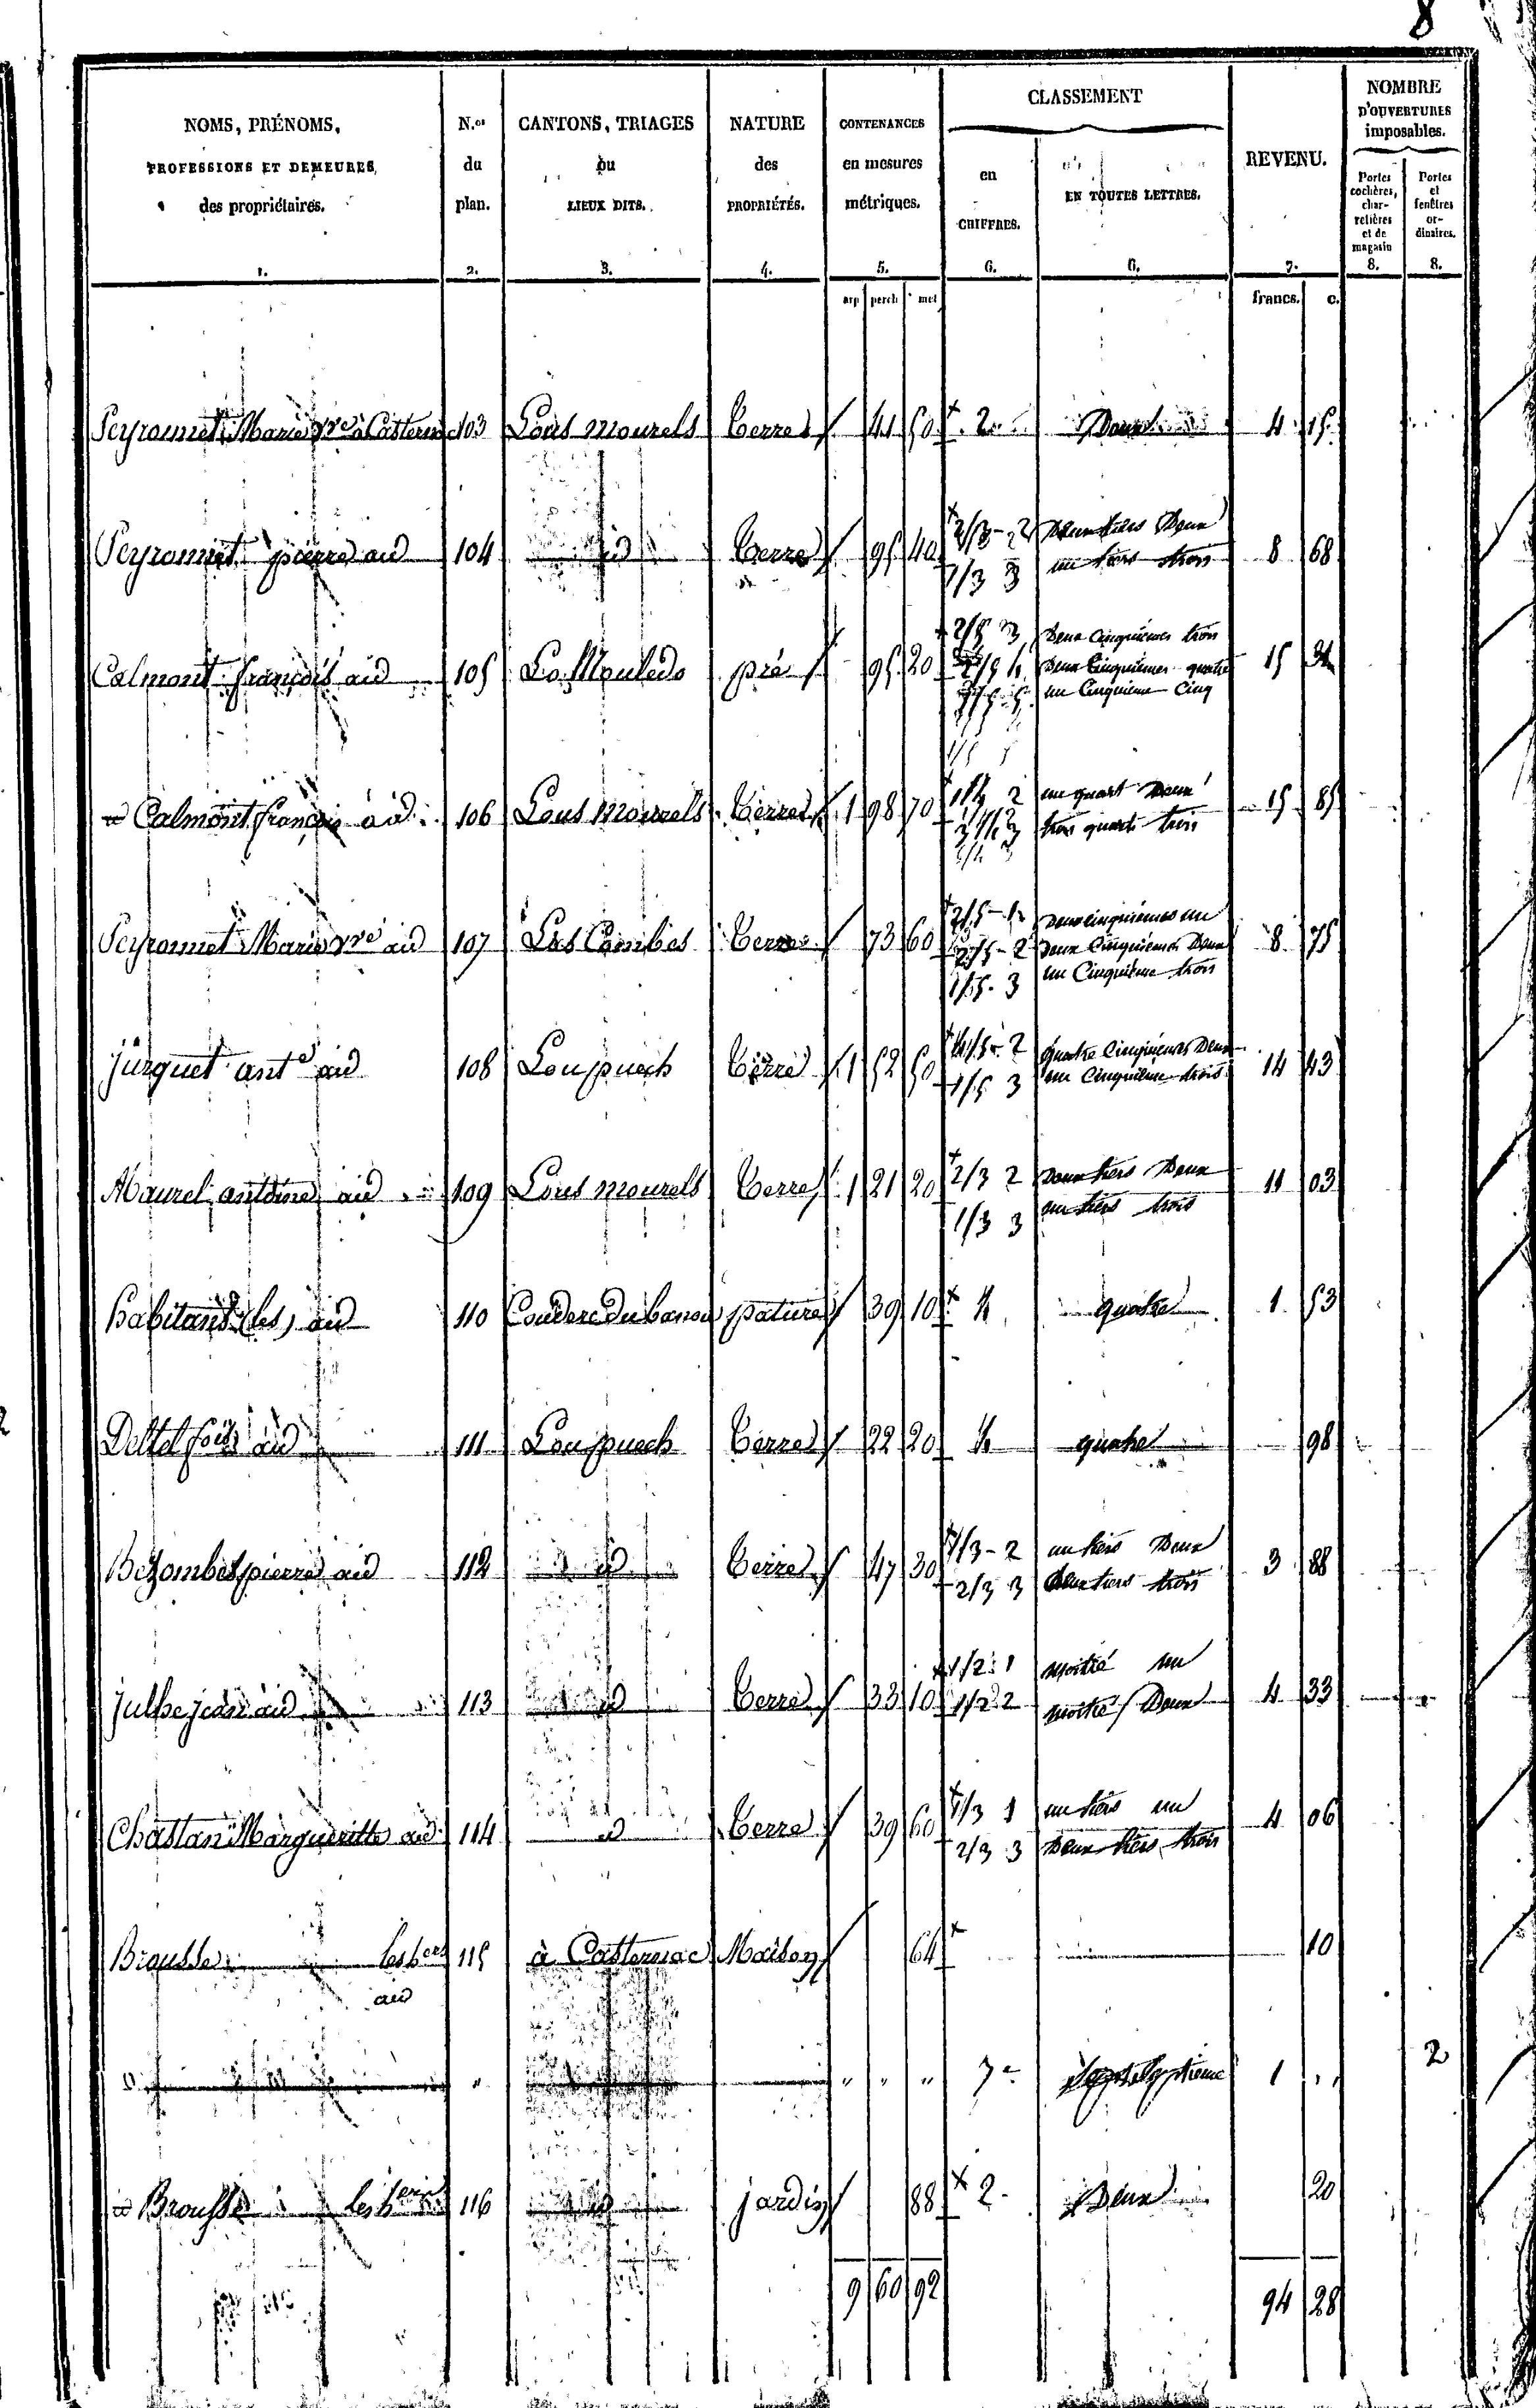 8
NOMS, PRÉNOMS, PROFESSIONS ET DEMEURES, des propriétaires. 1.
N.os du plan. 2.
CANTONS, TRIAGES ou LIEUX DITS. 3.
NATURE des PROPRIÉTÉS. 4.
CONTENANCES en mesures métriques. 5.
CLASSEMENT
en CHIFFRES. 6.
EN TOUTES LETTRES. 6.
REVENU. 7.
NOMBRE D'OUVERTURES imposables.
Portes cochères, charretières et de magasin 8.
Portes et fenêtres ordinaires. 8.
arp perch met francs. c.
Peyronnet Marie 103 Lous mourels terre 41 50 2 Deux 4 15
Peyronnet pierre aid 104 id terre 95 40 2/3 - 2 Deux tiers Deux 8 68
1/3 3 un tiers trois
Calmont françois aid 105 pré 95 20 2/5 3 Deux Cinquièmes trois 15
2/5 4 Deux Cinquièmes quatre
un Cinquième Cinq
id Calmont françois aid 106 Lous mourels terre 1 98 70 1/4 2 un quart Deux 15 85
3/4 3 trois quarts trois
Peyronnet Marie aid 107 Las Combes terre 73 60 2/5 - 1 Deux cinquièmes un 8 75
2/5 - 2 Deux Cinquièmes Deux
1/5 - 3 un Cinquième trois
Jurquet ant.e aid 108 Lou puech terre 1 52 50 4/5 - 2 quatre Cinquièmes Deux 14 43
1/5 3 un Cinquième trois
Maurel antoine aid 109 Lous mourels terre 1 21 20 2/3 2 Deux tiers Deux 11 03
1/3 3 un tiers trois
habitants (les) aid 110 pature 39 10 4 quatre 1 53
Deltel aid 111 Lou puech terre 22 20 4 quatre 98
Bezombes pierre aid 112 id terre 47 30 1/3 - 2 un tiers Deux 3 88
2/3 3 Deux tiers trois
julhe jean aid 113 id terre 33 10 1/2 1 moitié un 4 33
1/2 2 moitié Deux
Margueritte aid 114 id terre 39 60 1/3 1 un tiers un 4 06
2/3 3 Deux tiers trois
Brousse les h.ers 115 à Casternac Maison 64 10
aid
" " " " 7e 1 " 2
id Brousse les h 116 id jardin 88 2 Deux 20
9 60 92 94 28